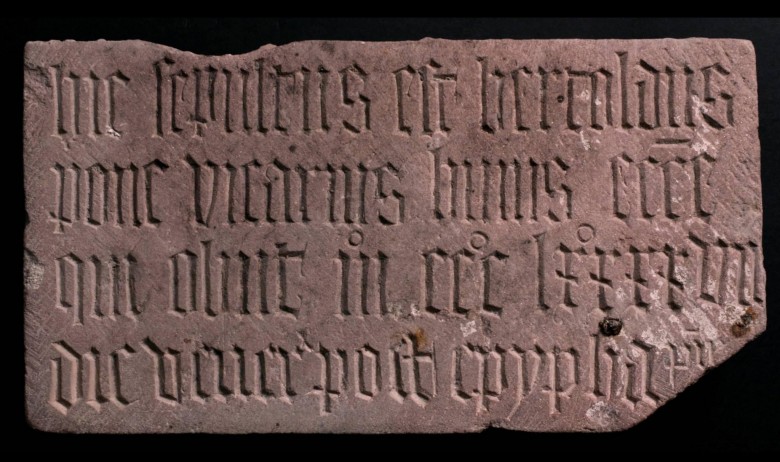 hic sepultus est bertoldus
pone vicarius huius ecc̄e
qui obiit m° ccc° lxxxx°viii
die vener' post